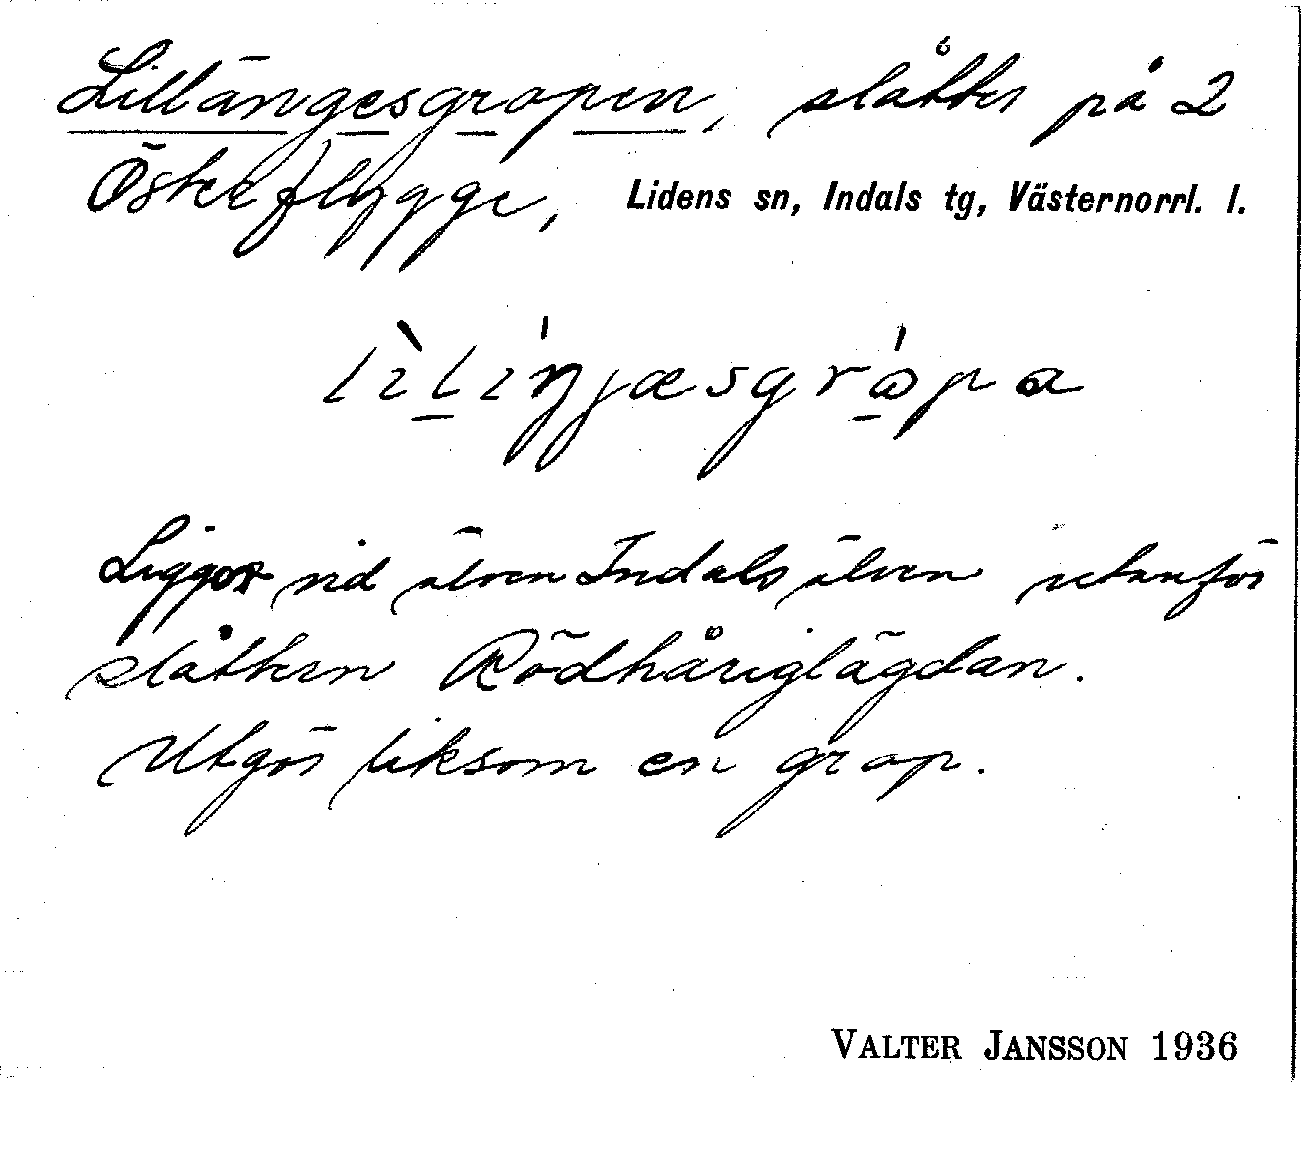 Lillängesgropen, slåtter på 2
Österflygge, Lidens sn, Indals tg, Västernorrl. l.
Ligger vid älven Indalsälven utanför
slåttern Rödhåriglägdan.
Utgör liksom en grop.
VALTER JANSSON 1936